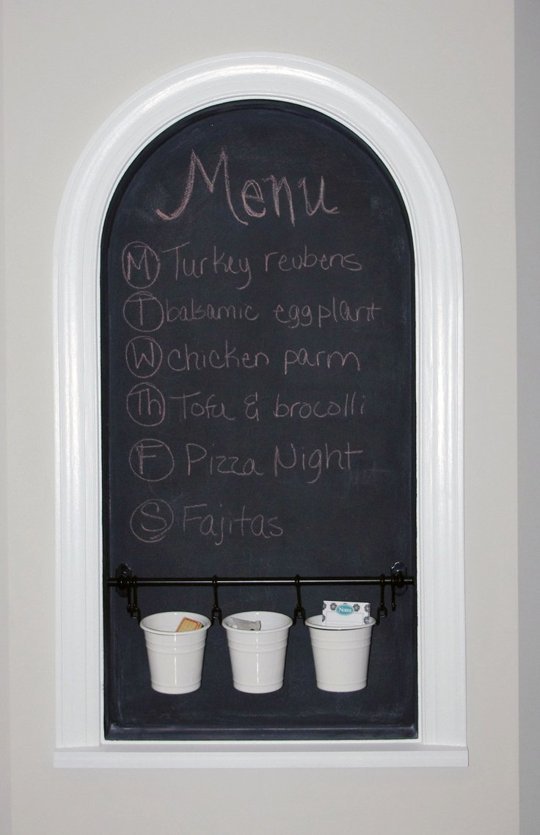 Menu
M Turkey reubens
T balsamic eggplant
W chicken parm
Th Tofu & brocolli
F Pizza Night
S Fajitas
Notes